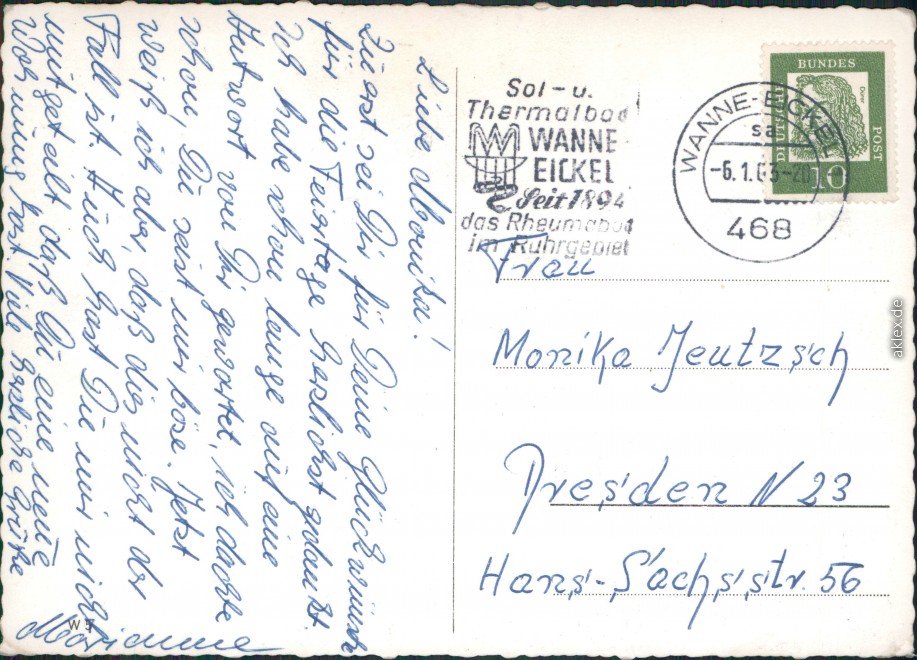 Liebe Monika!
Zuerst sei Dir für Deine Glückwünsche
für die Feiertage herlichst gedankt.
Ich habe schon lange auf eine
Antwort von Dir gewartet, ich dachte
schon, Du seist mir böse. Jetzt
weiß ich aber, daß dies nicht der
Fall ist. Auch hast Du mir nicht
mitgeteilt daß Du eine neue
Wohnung hast Viele herzliche Grüße
Marianne
W 5
Sol- u.
Thermalbad
WANNE
EICKEL
Seit 1894
das Rheumabad
im Ruhrgebiet
WANNE-EICKEL
sa
-6.1.63-20
468
DEUTSCHE
BUNDES
POST
Dürer
10
Frau
Monika Jeutzsch
Dresden N 23
Hans-Sachsstr. 56
aklex.de